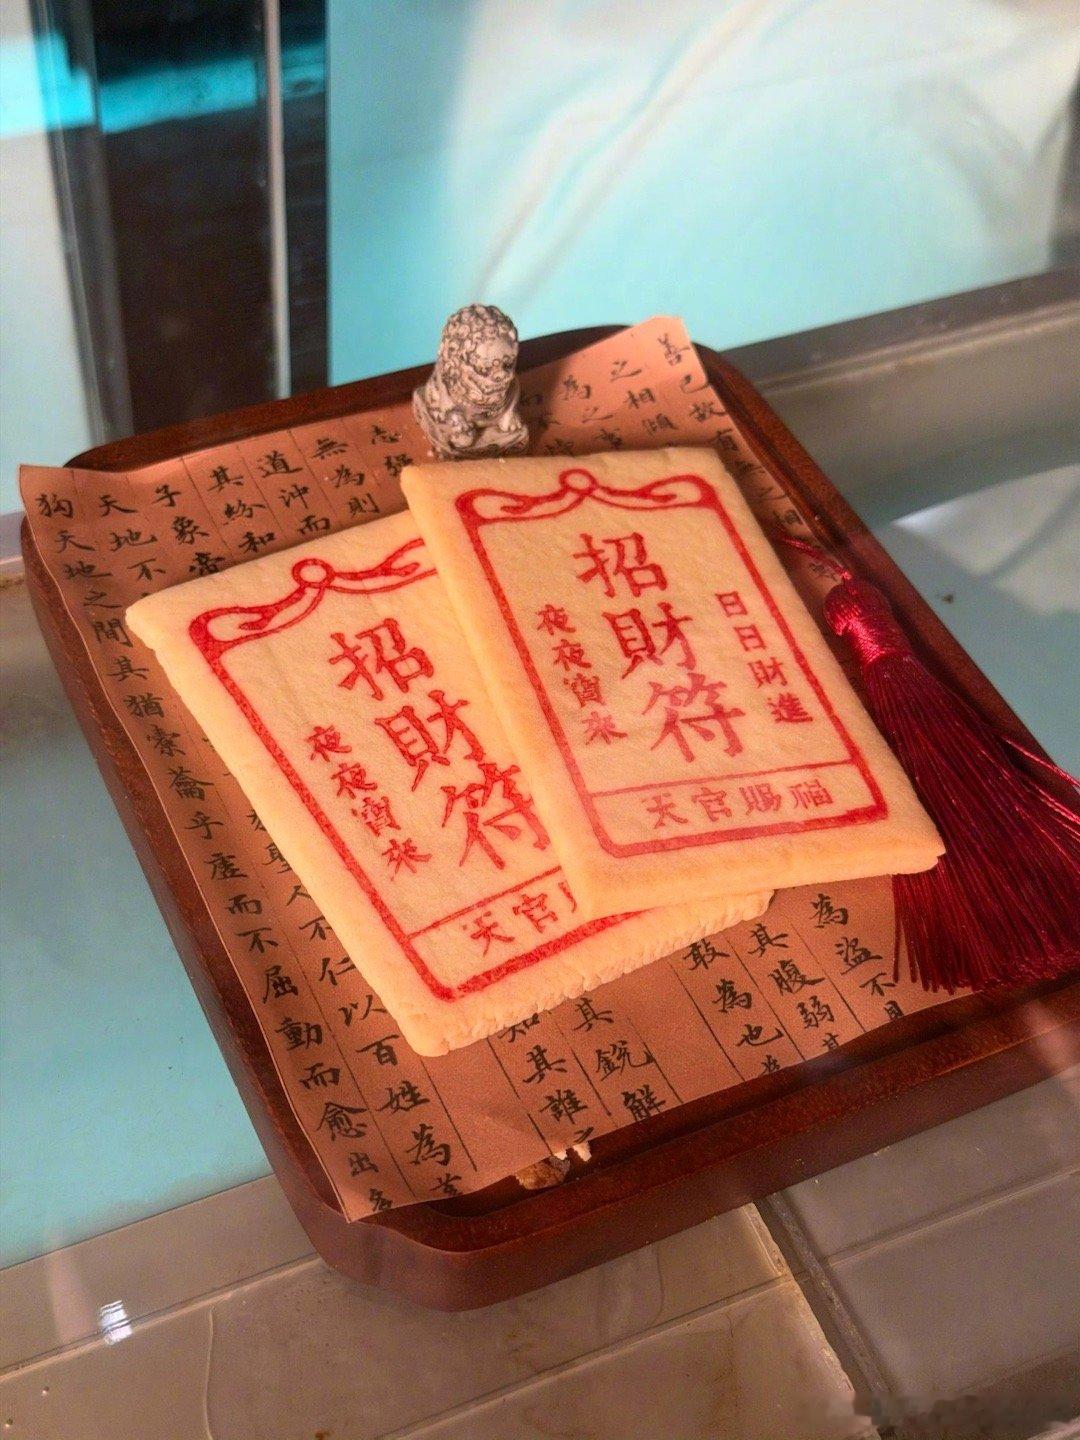 招財符
日日財進
夜夜寶來
天官賜福
招財符
夜夜寶來
天官
善
已故有無之相
之相傾
為之
志强
無為則
道沖而
其紛和
子象帝
天地不
狗天地之間其猶橐籥乎虛而不屈動而愈出多
聖人不仁以百姓為芻
知其誰之
其銳解
敢為也
其腹弱其
為盜不